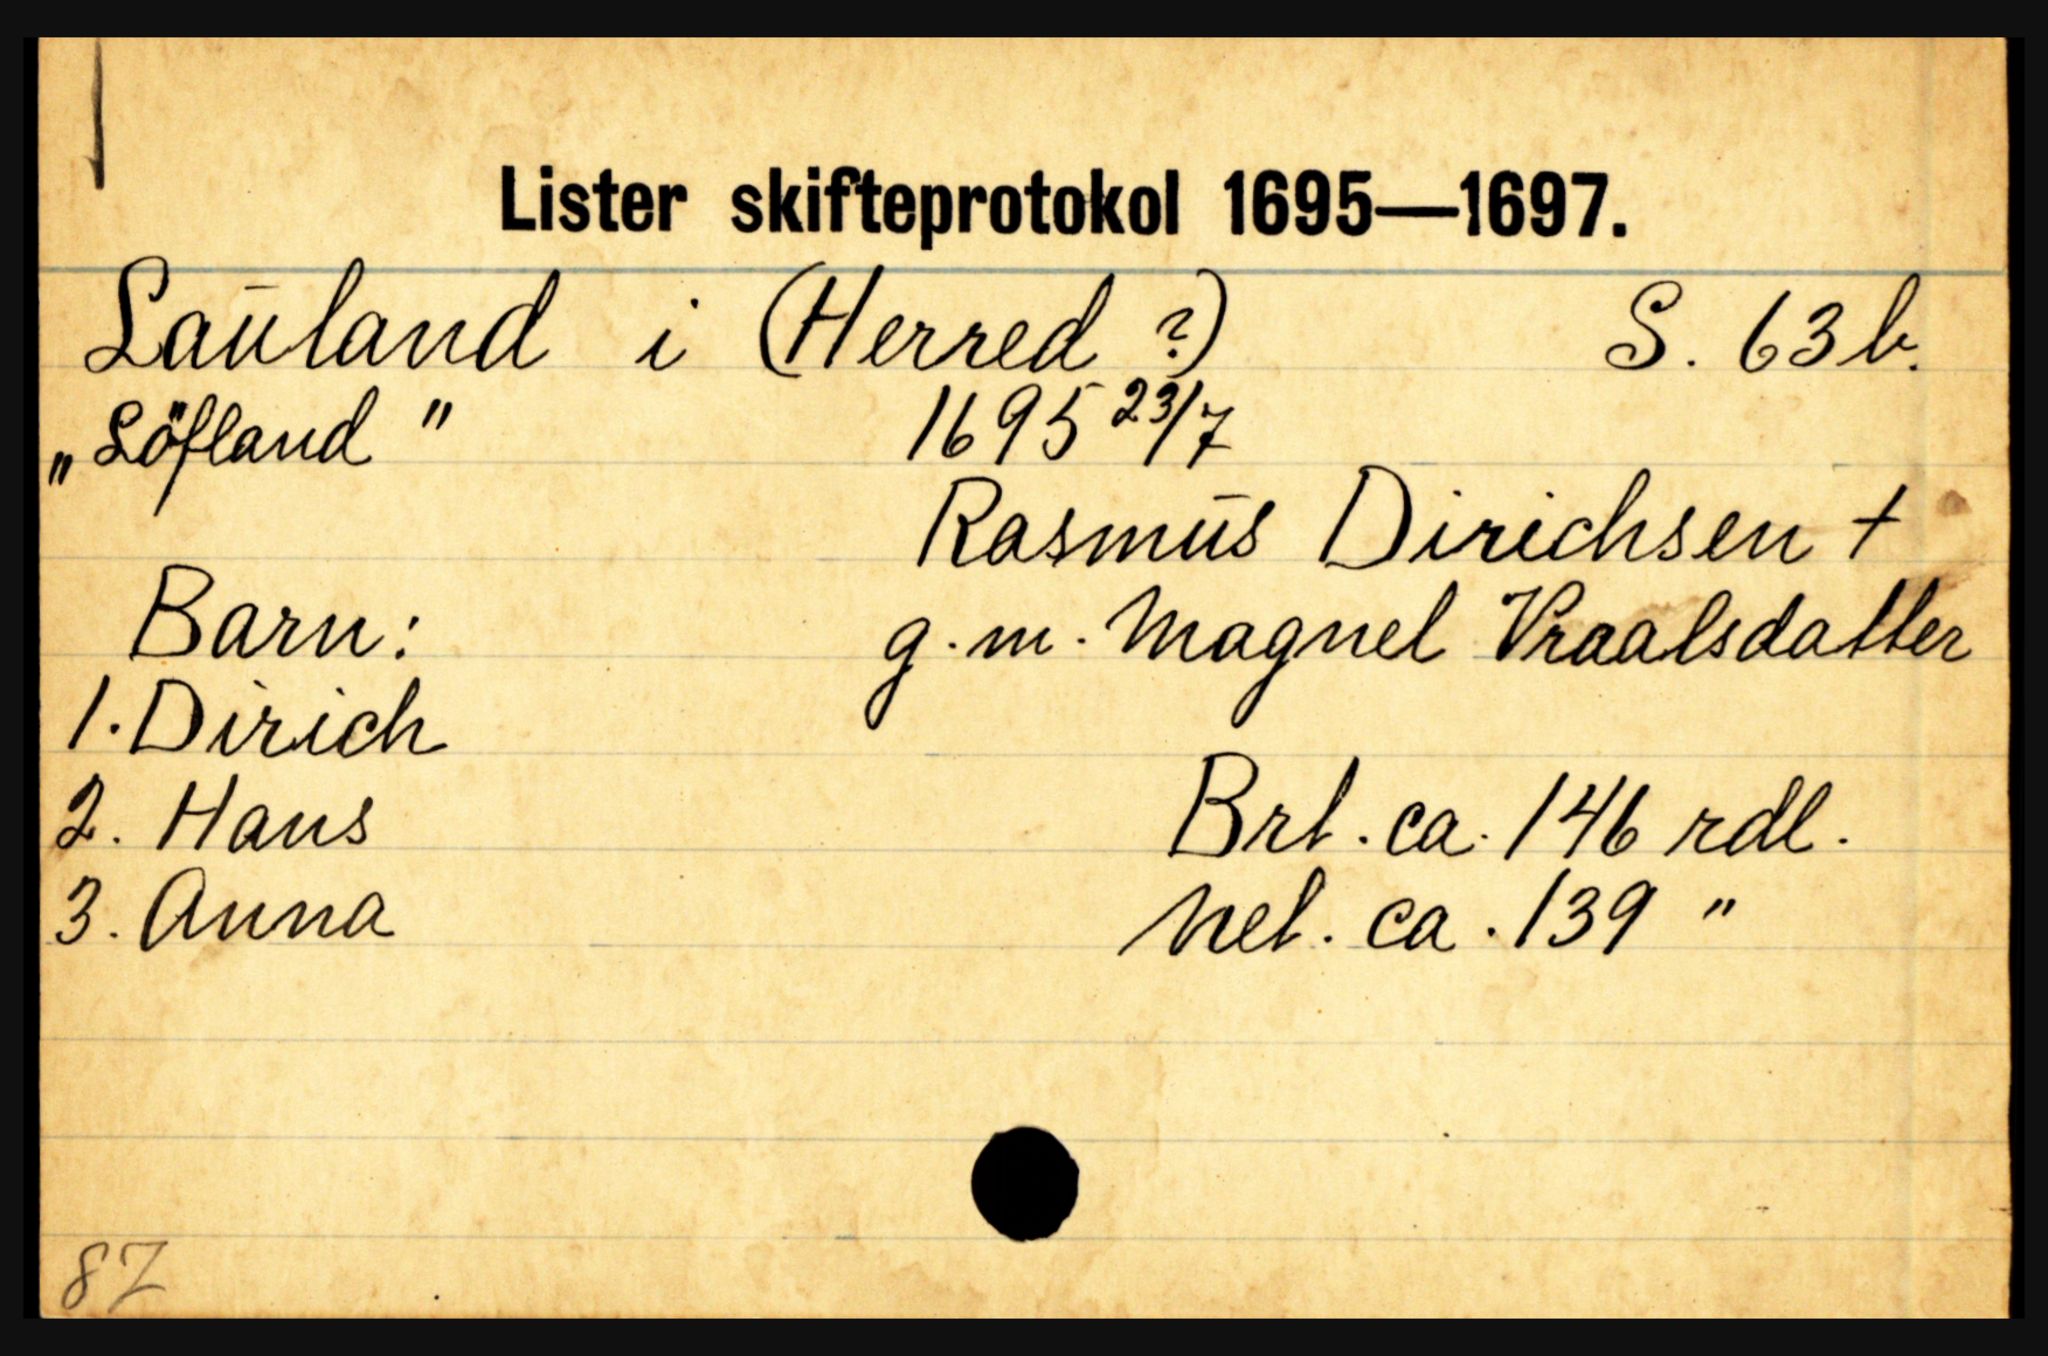 Lister skifteprotokol 1695—1697.
Lauland i (Herred ?) S. 63 b.
„Söfland" 1695 23/7
Rasmus Dirichsen +
Barn: g. m. Magnel Vraalsdatter
1. Dirich
2. Hans Brt. ca. 146 rdl.
3. Anna Net. ca. 139 "
87